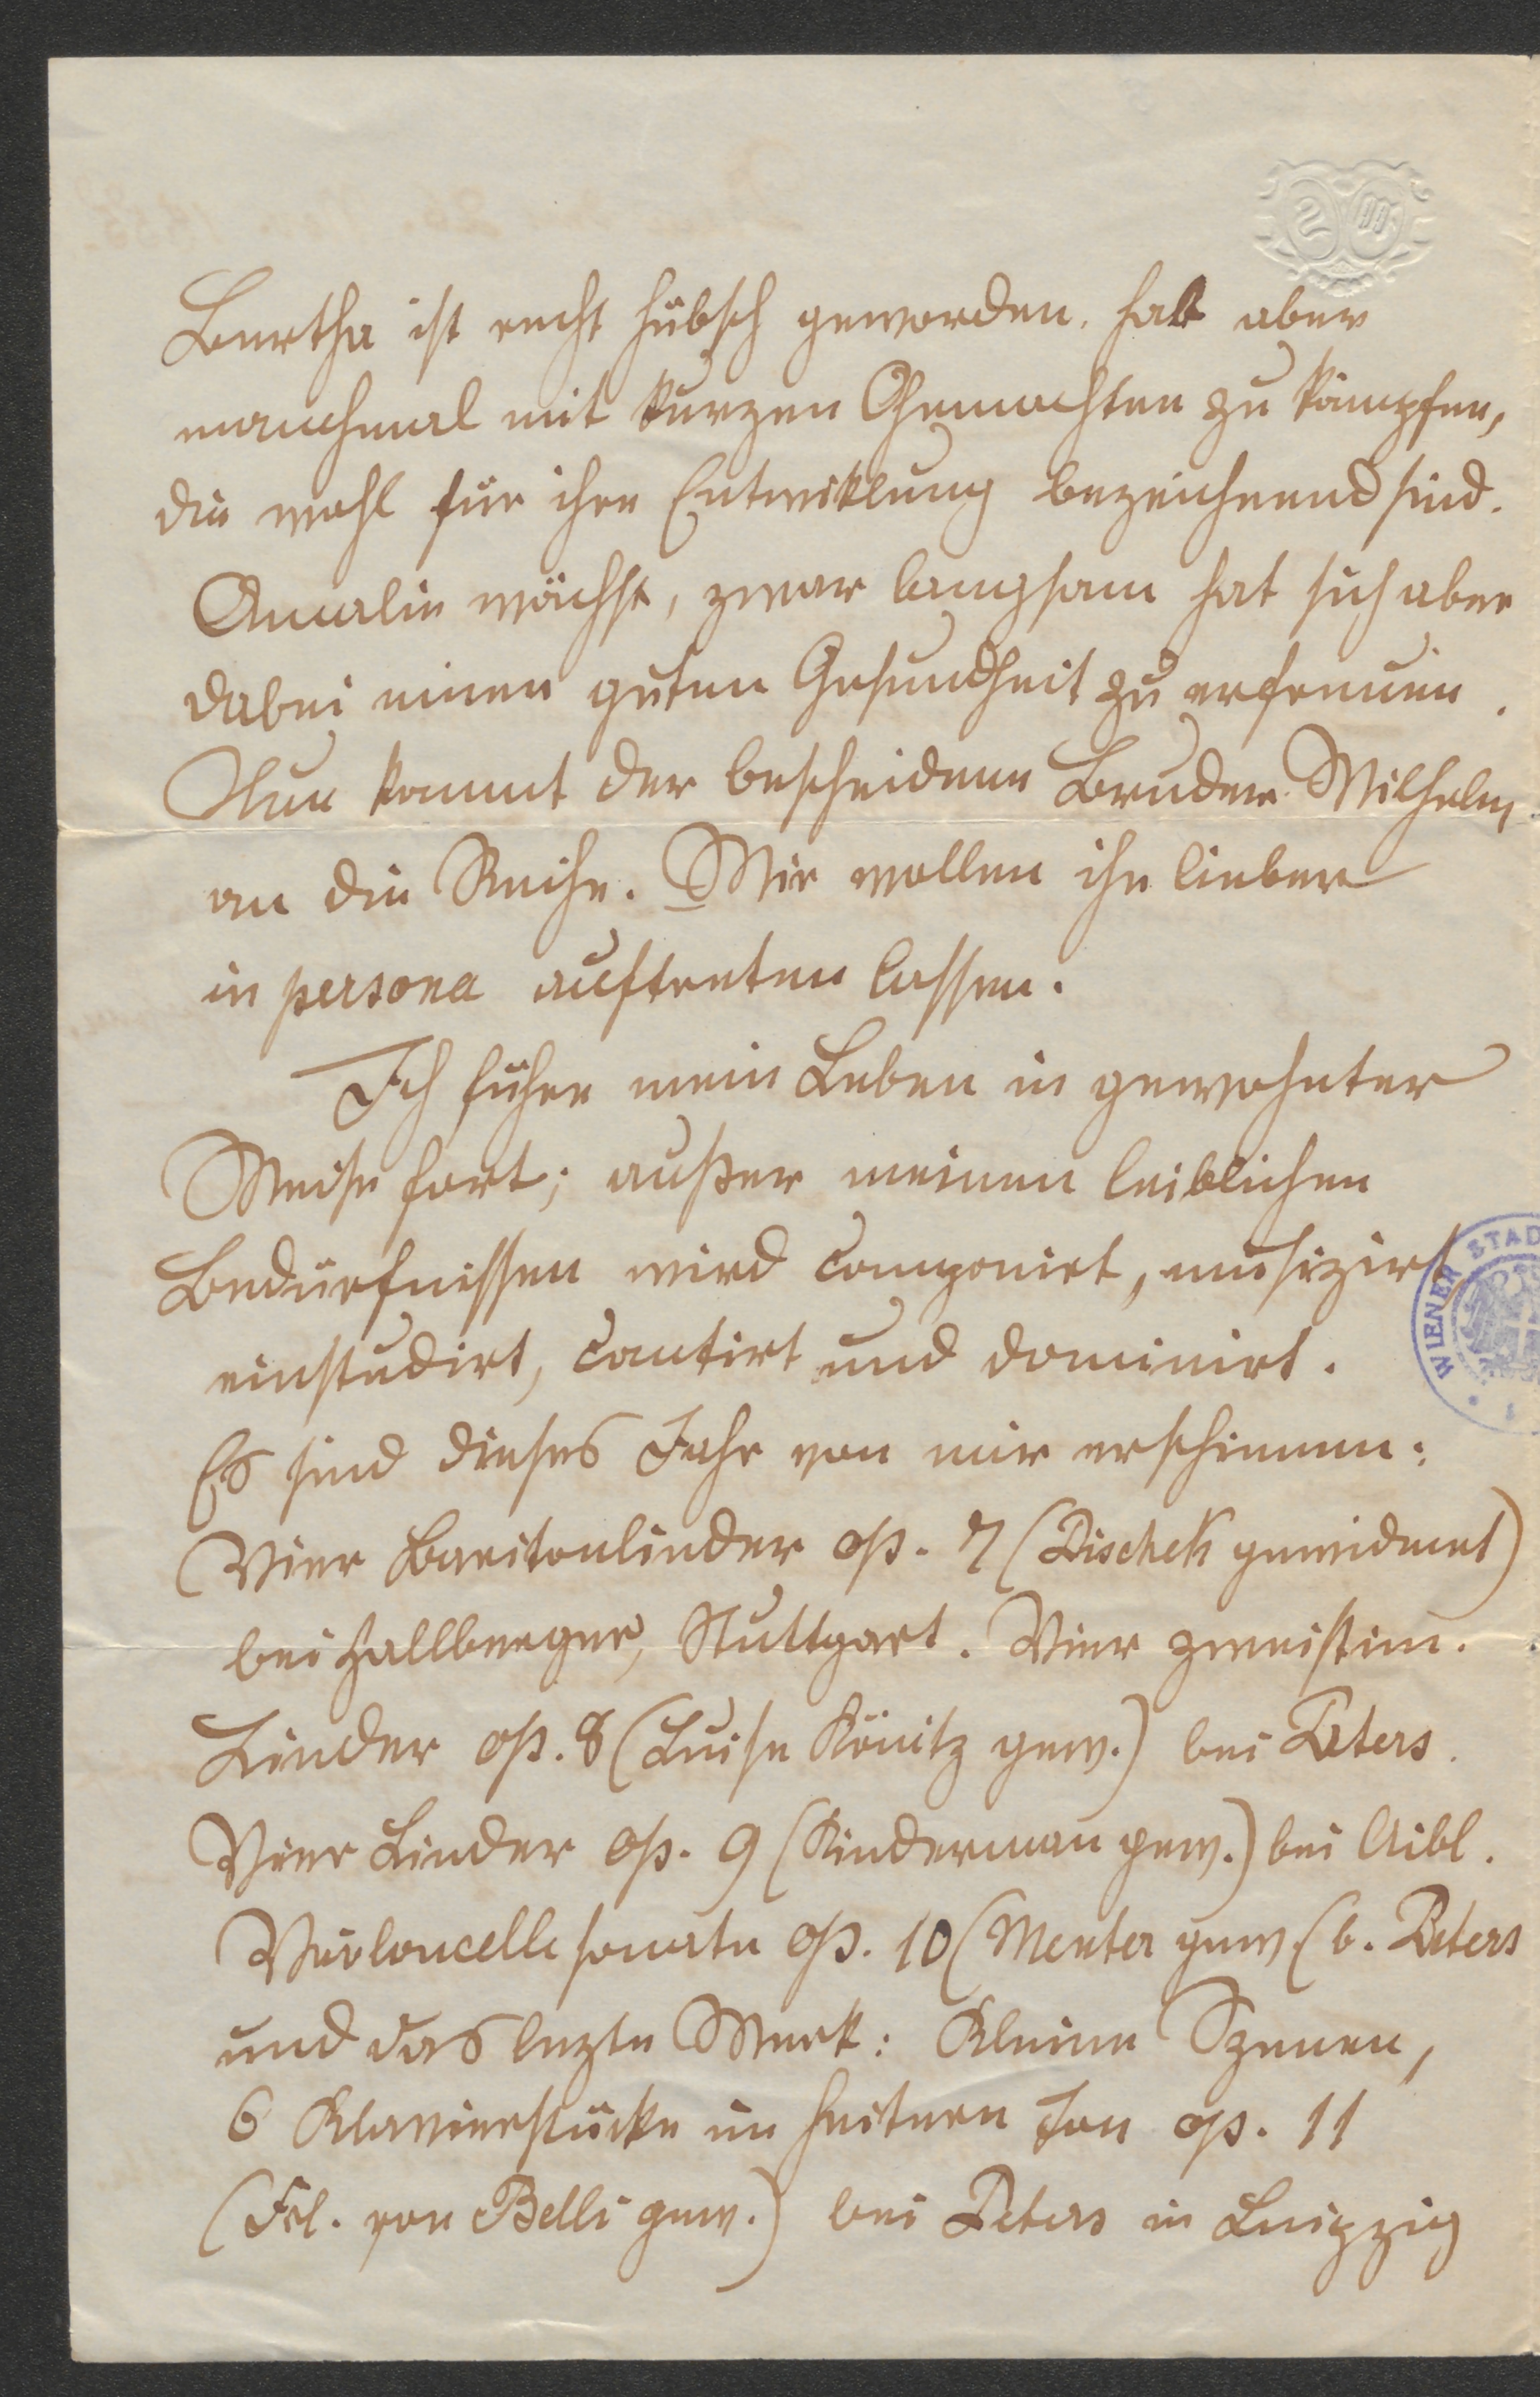 Bertha ist recht hübsch geworden, hat aber
manchmal mit kurzen Ohnmachten zu kämpfen,
die wohl für ihre Entwiklung bezeichnend sind.
Amalie wächst, zwar langsam hat sich aber
dabei einer guten Gesundheit zu erfreuen.
Nun kommt der bescheidene Bruder Wilhelm
an die Reihe. Wir wollen ihn lieber
in persona auftreten lassen.
Ich führe mein Leben in gewohnter
Weise fort; außer meinen leiblichen
Bedürfnissen wird componirt, musizirt,
einstudirt, cantirt und dominirt.
Es sind dieses Jahr von mir erschienen:
Vier Baritonlieder op. 7 (Pischek gewidmet)
bei Hallberger, Stuttgart. Vier zweistim.
Lieder op. 8 (Luise Könitz gew.) bei Peters.
Vier Lieder op. 9 (Kinderman gew.) bei Aibl.
Violoncellsonate op. 10 (Menter gew. (b. Peters
und das lezte Werk: Kleine Szenen,
6 Klavierstücke im heitern Ton op. 11
(Frl. von Belli gew.) bei Peters in Leipzig
WIENER STAD